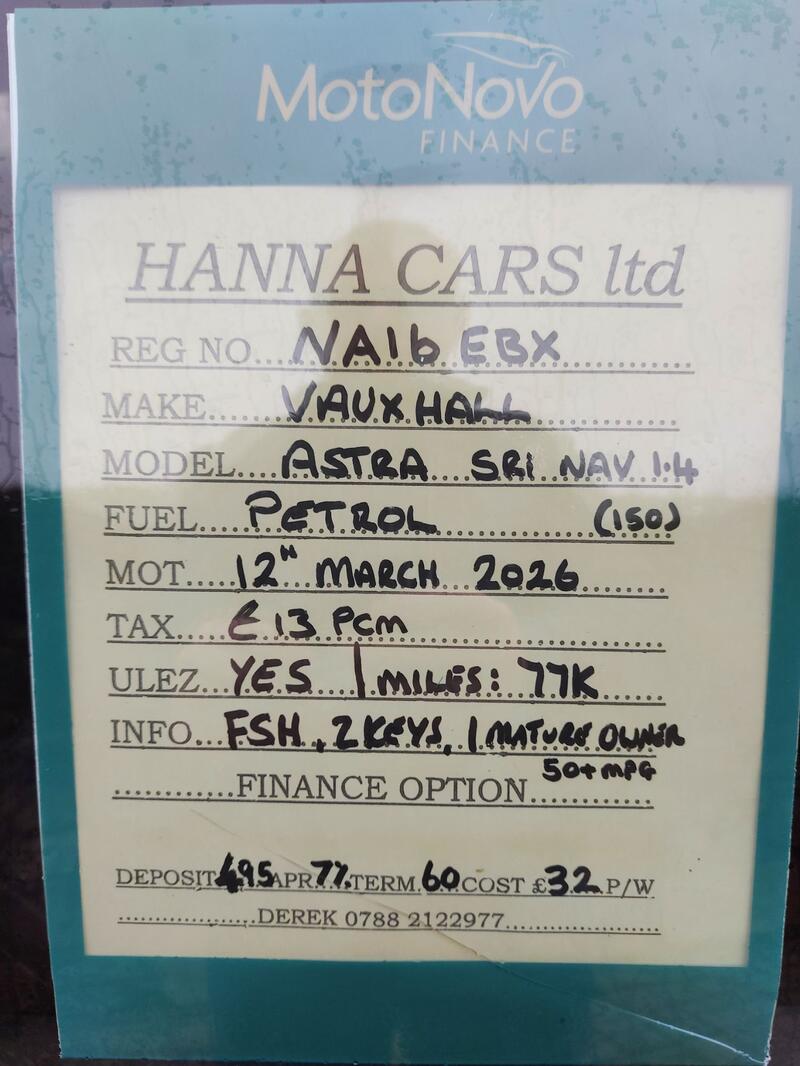 MotoNovo
FINANCE
HANNA CARS ltd
REG NO....NA16 EBX
MAKE......VAUXHALL
MODEL....ASTRA SRi NAV 1.4
FUEL....PETROL (150)
MOT.....12" MARCH 2026
TAX.....£13 PCM
ULEZ...YES | MILES: 77K
INFO...FSH, 2 KEYS, 1 MATURE OWNER
50+ MPG
............FINANCE OPTION............
DEPOSIT 495 APR 7% TERM 60 COST £32 P/W
..............DEREK 0788 2122977................